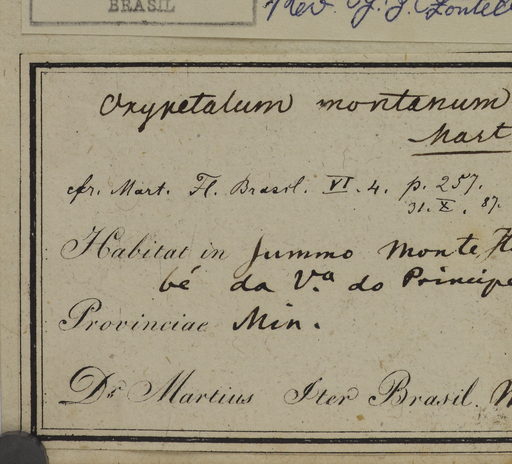 BRASIL
Rev. J. J. Fontel
Oxypetalum montanum
Mart
cfr. Mart. Fl. Brasil. VI. 4. p. 257.
31. X. 87.
Habitat in summo Monte Ita
bé da V.a do Principe
Provinciae Min.
Dr Martius Iter Brasil.